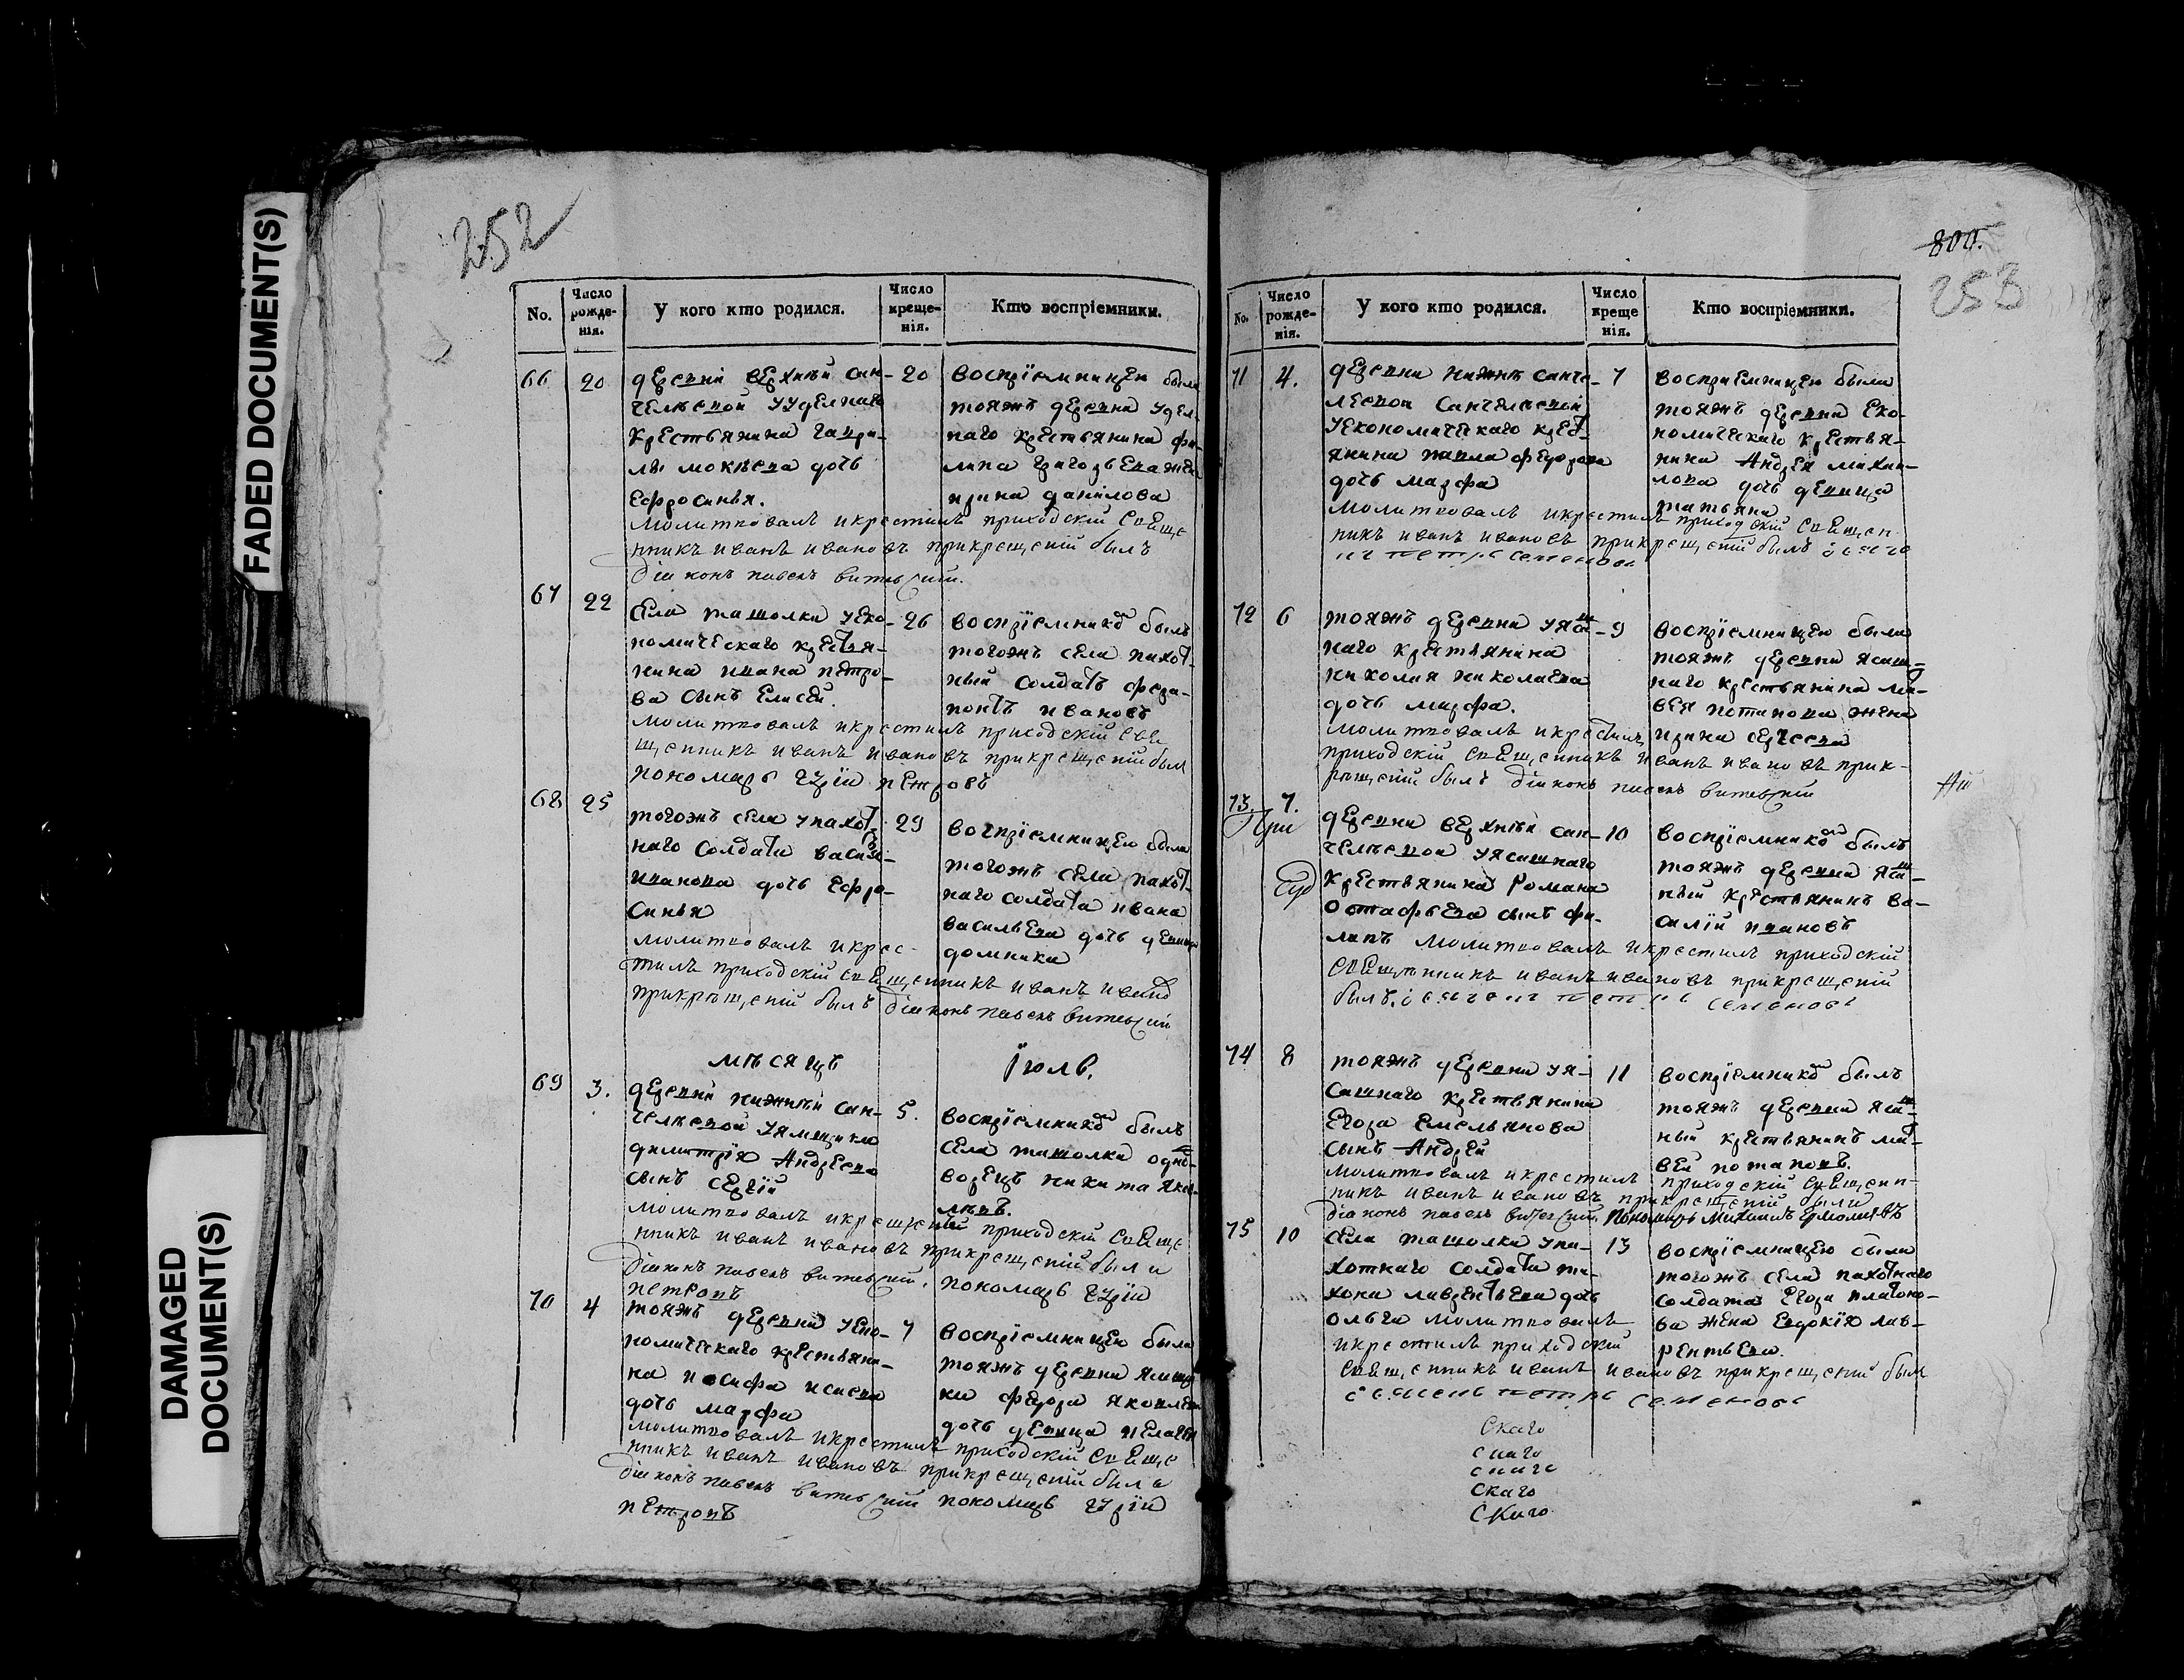 FADED DOCUMENT(S)
DAMAGED
DOCUMENT(S)
252
No.
Число
рожде-
нія.
У кого кто родился.
Число
креще-
нія.
Кто воспріемники.
66 20
деревни верхнѣй сан-
челѣевой уудѣлнаго
крестьянина гаври-
лы мокѣева дочь
Ефросинья.
20
воспріемницею была
тояжъ деревни удел-
наго крестьянина фи-
липа григорьева жена
ирина данилова
молитвовалъ и крестилъ приходскій Свѣще
нникъ иванъ ивановъ при крещеніи былъ
діяконъ павелъ витевскій.
67 22
села ташолки уеко-
номическаго крестья-
нина ивана петро-
ва сынъ Елисей.
26
воспріемникомъ былъ
тогожъ села пахот-
ный солдатъ фера-
понтъ ивановъ
молитвовалъ и крестилъ приходскій Свѣ
щенникъ иванъ ивановъ при крещеніи был
пономарь гурїи петровъ
68 25
тогожъ села упахот-
наго солдата васил-
иванова дочь Ефро-
синья
29
воспріемницею была
тогожъ села пахот-
наго солдата ивана
васильева дочь девица
домника
молитвовалъ и крес-
тилъ приходскій свѣщенникъ иванъ иванов
при крѣщеніи былъ діяконъ павелъ витевскій
мѣсяцъ Іюль.
69 3.
деревни нижнѣй сан-
челѣевой уямщика
димитрія Андреева
сынъ сергїй
5.
воспріемникомъ былъ
села ташолки одно-
ворецъ никита яков-
левъ.
молитвовалъ и крещеніи приходскій Свѣще
нникъ иванъ ивановъ при крещеніи были
діяконъ павелъ витевскій. пономарь гурїи
петровъ
70 4
тояжъ деревни уеко-
номическаго крестьяни-
на иосифа исаева
дочь марфа
7
воспріемницею была
тояжъ деревни ямщи
ка федора яковлева
дочь девица пелагея
молитвовалъ и крестилъ приходскій Свѣще
нникъ иванъ ивановъ при крещеніи были
діяконъ павелъ витевскій пономарь гурїи
петровъ
800.
253
No.
Число
рожде-
нія.
У кого кто родился.
Число
креще
нія.
Кто воспріемники.
71 4.
деревни нижнѣ санче-
леевои Санчелеевой
уекономическаго крест-
янина павла федорова
дочь марфа
7
воспріемницею была
тояжъ деревни Еко-
номическаго крестья-
нина Андрея михаи-
лова дочь девица
татьяна
молитвовалъ и крестилъ приходскій Свѣщен
никъ иванъ ивановъ при крещеніи былъ
петръ семеновъ
72 6
тояжъ деревни уясаш-
наго крестьянина
николая николаева
дочь марфа.
9
воспріемницею была
тояжъ деревни ясаш-
наго крестьянина мат-
вея потапова жена
ирина сергеева
молитвовалъ и крестилъ
приходскій Свѣщенникъ иванъ ивановъ при к-
рещеніи былъ діяконъ павелъ витевскій
73. 7.
При
деревни верхнѣй сан-
челѣевой уясашнаго
крестьянина Романа
Остафьева сынъ фи-
липъ
10
воспріемникомъ былъ
тояжъ деревни ясаш-
ный крестьянинъ ва-
силїи ивановъ
молитвовалъ и крестилъ приходскій
Свѣщѣнникъ иванъ ивановъ при крещеніи
былъ петръ семеновъ
74 8
тояжъ деревни уя-
сашнаго крестьянина
Егора Емельянова
сынъ Андрей
11
воспріемникомъ былъ
тояжъ деревни ясаш-
ный крестьянинъ мат-
вей потаповъ.
молитвовалъ и крестилъ приходскій Свѣщен-
никъ иванъ ивановъ при крещеніи были
діяконъ павелъ витевскій. Пономарь Михаилъ Ермолаевъ
75 10
села ташолки упа-
хотнаго солдата ти-
хона лаврентьева дочь
ольга
13
воспріемницею была
тогожъ села пахотнаго
солдата Егора платоно-
ва жена Евдокїя лав-
рентьева.
молитвовалъ
и крестилъ приходскій
Свѣщенникъ иванъ ивановъ при крещеніи был
петръ семеновъ
Скаго
скаго
скаго
Скаго
Скаго